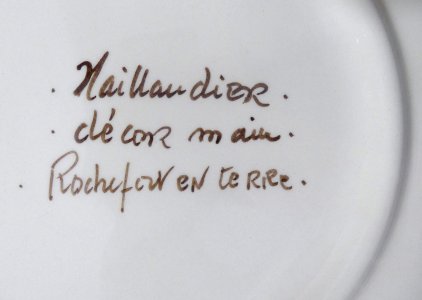 . Naillaudier.
. décor main.
. Rochefort en terre.